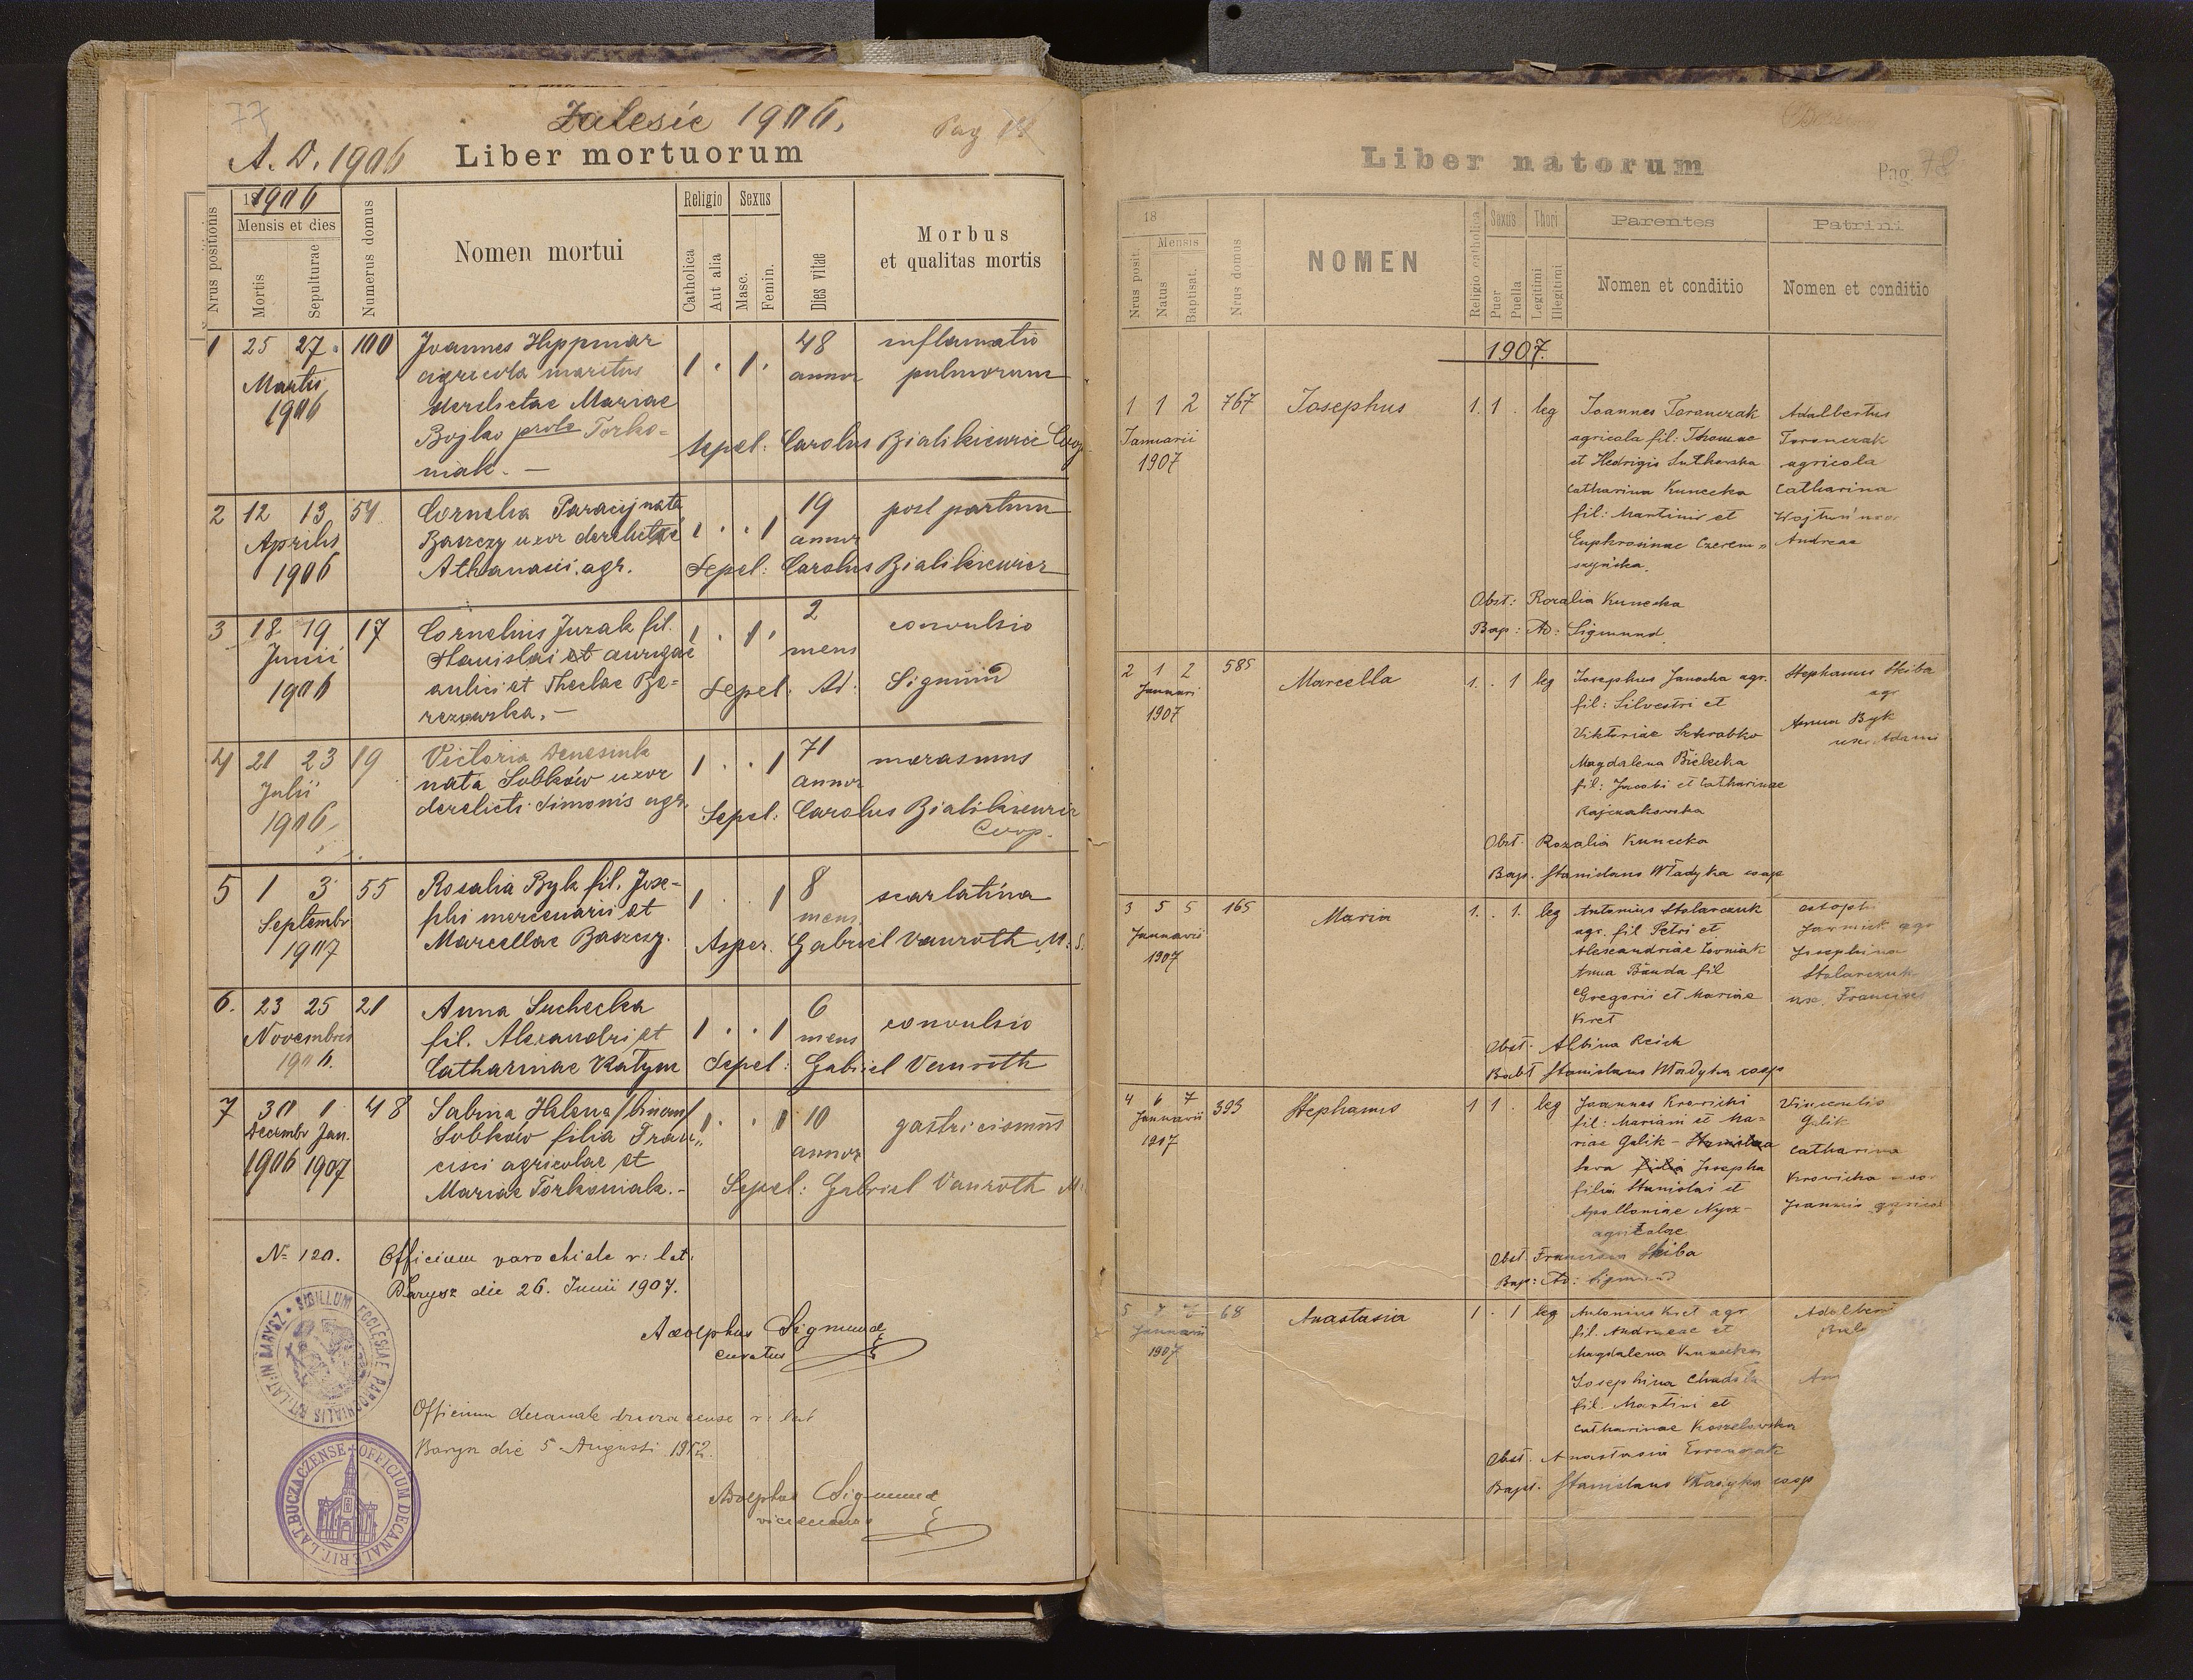 77
Zalesie 1906.
Pag
A. D. 1906
Liber mortuorum
Nrus positionis
1906
Mensis et dies
Mortis
Sepulturae
Numerus domus
Nomen mortui
Religio
Catholica
Aut alia
Sexus
Masc.
Femin.
Dies vitae
Morbus
et qualitas mortis
1 25 27 100 Joannes Hippmar 1 . 1 . 48 inflamatio
Martii agricola maritus annor pulmorum
1906 derelictae Mariae
Bojko prole Torko-
niak. — Sepel: Carolus Bialikiewicz Coop
2 12 13 54 Cornelia Paracij nata 1 . . 1 19 post partum
Aprilis Baszczy uxor derelicti annor
1906 Athanasii agr. Sepel: Carolus Bialikiewicz
3 18 19 17 Cornelius Juzak fil. 1 . 1 . 2 convulsio
Junii Stanislai et aurigae mens
1906 aulici et Theclae Be-
rezowska. — Sepel: Ad: Sigmund
4 21 23 19 Victoria Denesiuk 1 . . 1 71 marasmus
Julii nata Sobków uxor annor
1906 derelicti Simonis agr. Sepel: Carolus Bialikiewicz
Coop.
5 1 3 55 Rosalia Byk fil. Jose- 1 . . 1 8 scarlatina
Septembr phi mercenarii et mens
1907 Marcellae Baszczy. Asper. Gabriel Vanroth M. S.
6. 23 25 21 Anna Suchecka 1 . . 1 6 convulsio
Novembris fil. Alexandri et mens
1906. Catharinae Katym Sepel: Gabriel Vanroth
7 30 1 48 Sabina Helena /binom/ 1 . . 1 10 gastricismus
Decembr Jan. Sobków filia Fran- annor
1906 1907 cisci agricolae et
Mariae Torkoniak. - Sepel: Gabriel Vanroth M.
No 120. Officium parochiale r: lat:
Barysz die 26. Junii 1907.
Adolphus Sigmund
curatus
SIGILLUM ECCLESIAE PAROCHIALIS RIT. LAT. IN BARYSZ
Officium decanale buczacense r: lat
Barysz die 5 Augusti 1912.
Adolphus Sigmund
vicedecanus
OFFICIUM DECANALE RIT. LAT. BUCZACZENSE
Liber natorum
Pag. 78
18
Nrus posit.
Mensis
Natus
Baptisat.
Nrus domus
NOMEN
Religio catholica
Sexus
Puer
Puella
Thori
Legitimi
Illegitimi
Parentes
Nomen et conditio
Patrini
Nomen et conditio
1907.
1 1 2 767 Josephus 1. 1 . leg Joannes Toronczak Adalbertus
Januarii agricola fil: Thomae Toronczak
1907 et Hedrigis Sutkowska agricola
Catharina Kunecka Catharina
fil: Martinis et
Euphrosinae Czerem- Andreae
szyńska.
Obst: Rozalia Kunecka
Bap: Ad: Sigmund
2 1 2 585 Marcella 1. . 1 leg Josephus Janocha agr. Stephanus Skiba
Januari fil: Silvestri et agr
1907 Viktoriae Szkrabko Anna Byk
Magdalena Bielecka ux. Adami
fil: Jacobi et Catharinae
Rajczakowska
Obst. Rozalia Kunecka
Bap. Stanislaus Władyka coop
3 5 5 165 Maria 1. . 1. leg Antonius Stolarczuk
Januarii agr. fil Petri et agr
1907 Alexandriae Josephina
Anna Bauda fil Stolarczuk
Gregorii et Mariae ux. Francisci
Kret
Obst. Albina Reich
Babt Stanislaus Władyka coop
4 6 7 393 Stephanus 1 1 . leg Joannes Krowicki Vincentis
Januarii fil: Mariani et Ma- Galik
1907 riae Galik - Catharina
filia Josepha Krowicka uxor
filia Stanislai et Joannis
Apolloniae Nycz-
agricolae
Obst Francisca Skiba
Bap: Ad: Sigmund
5 7 7 68 Anastasia 1 . 1 leg Antonius Kret agr Adalber
Januarii fil. Andreae et
1907 Magdalena Kunecka
Josephina
fil. Martini et
Catharinae Koszelowska
Obst. Anastasia
Bapt. Stanislaus Władyka coop